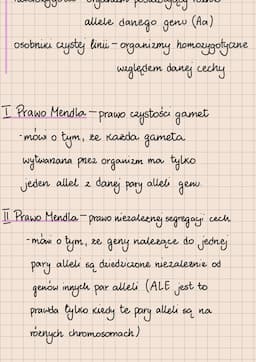 allele danego genu (Aa)
osobniki czystej linii - organizmy homozygotyczne
względem danej cechy
I Prawo Mendla - prawo czystości gamet
- mówi o tym, że każda gameta
wytwarzana przez organizm ma tylko
jeden allel z danej pary alleli genu
II Prawo Mendla - prawo niezależnej segregacji cech
- mówi o tym, że geny należące do jednej
pary alleli są dziedziczone niezależnie od
genów innych par alleli (ALE jest to
prawda tylko kiedy te pary alleli są na
różnych chromosomach)